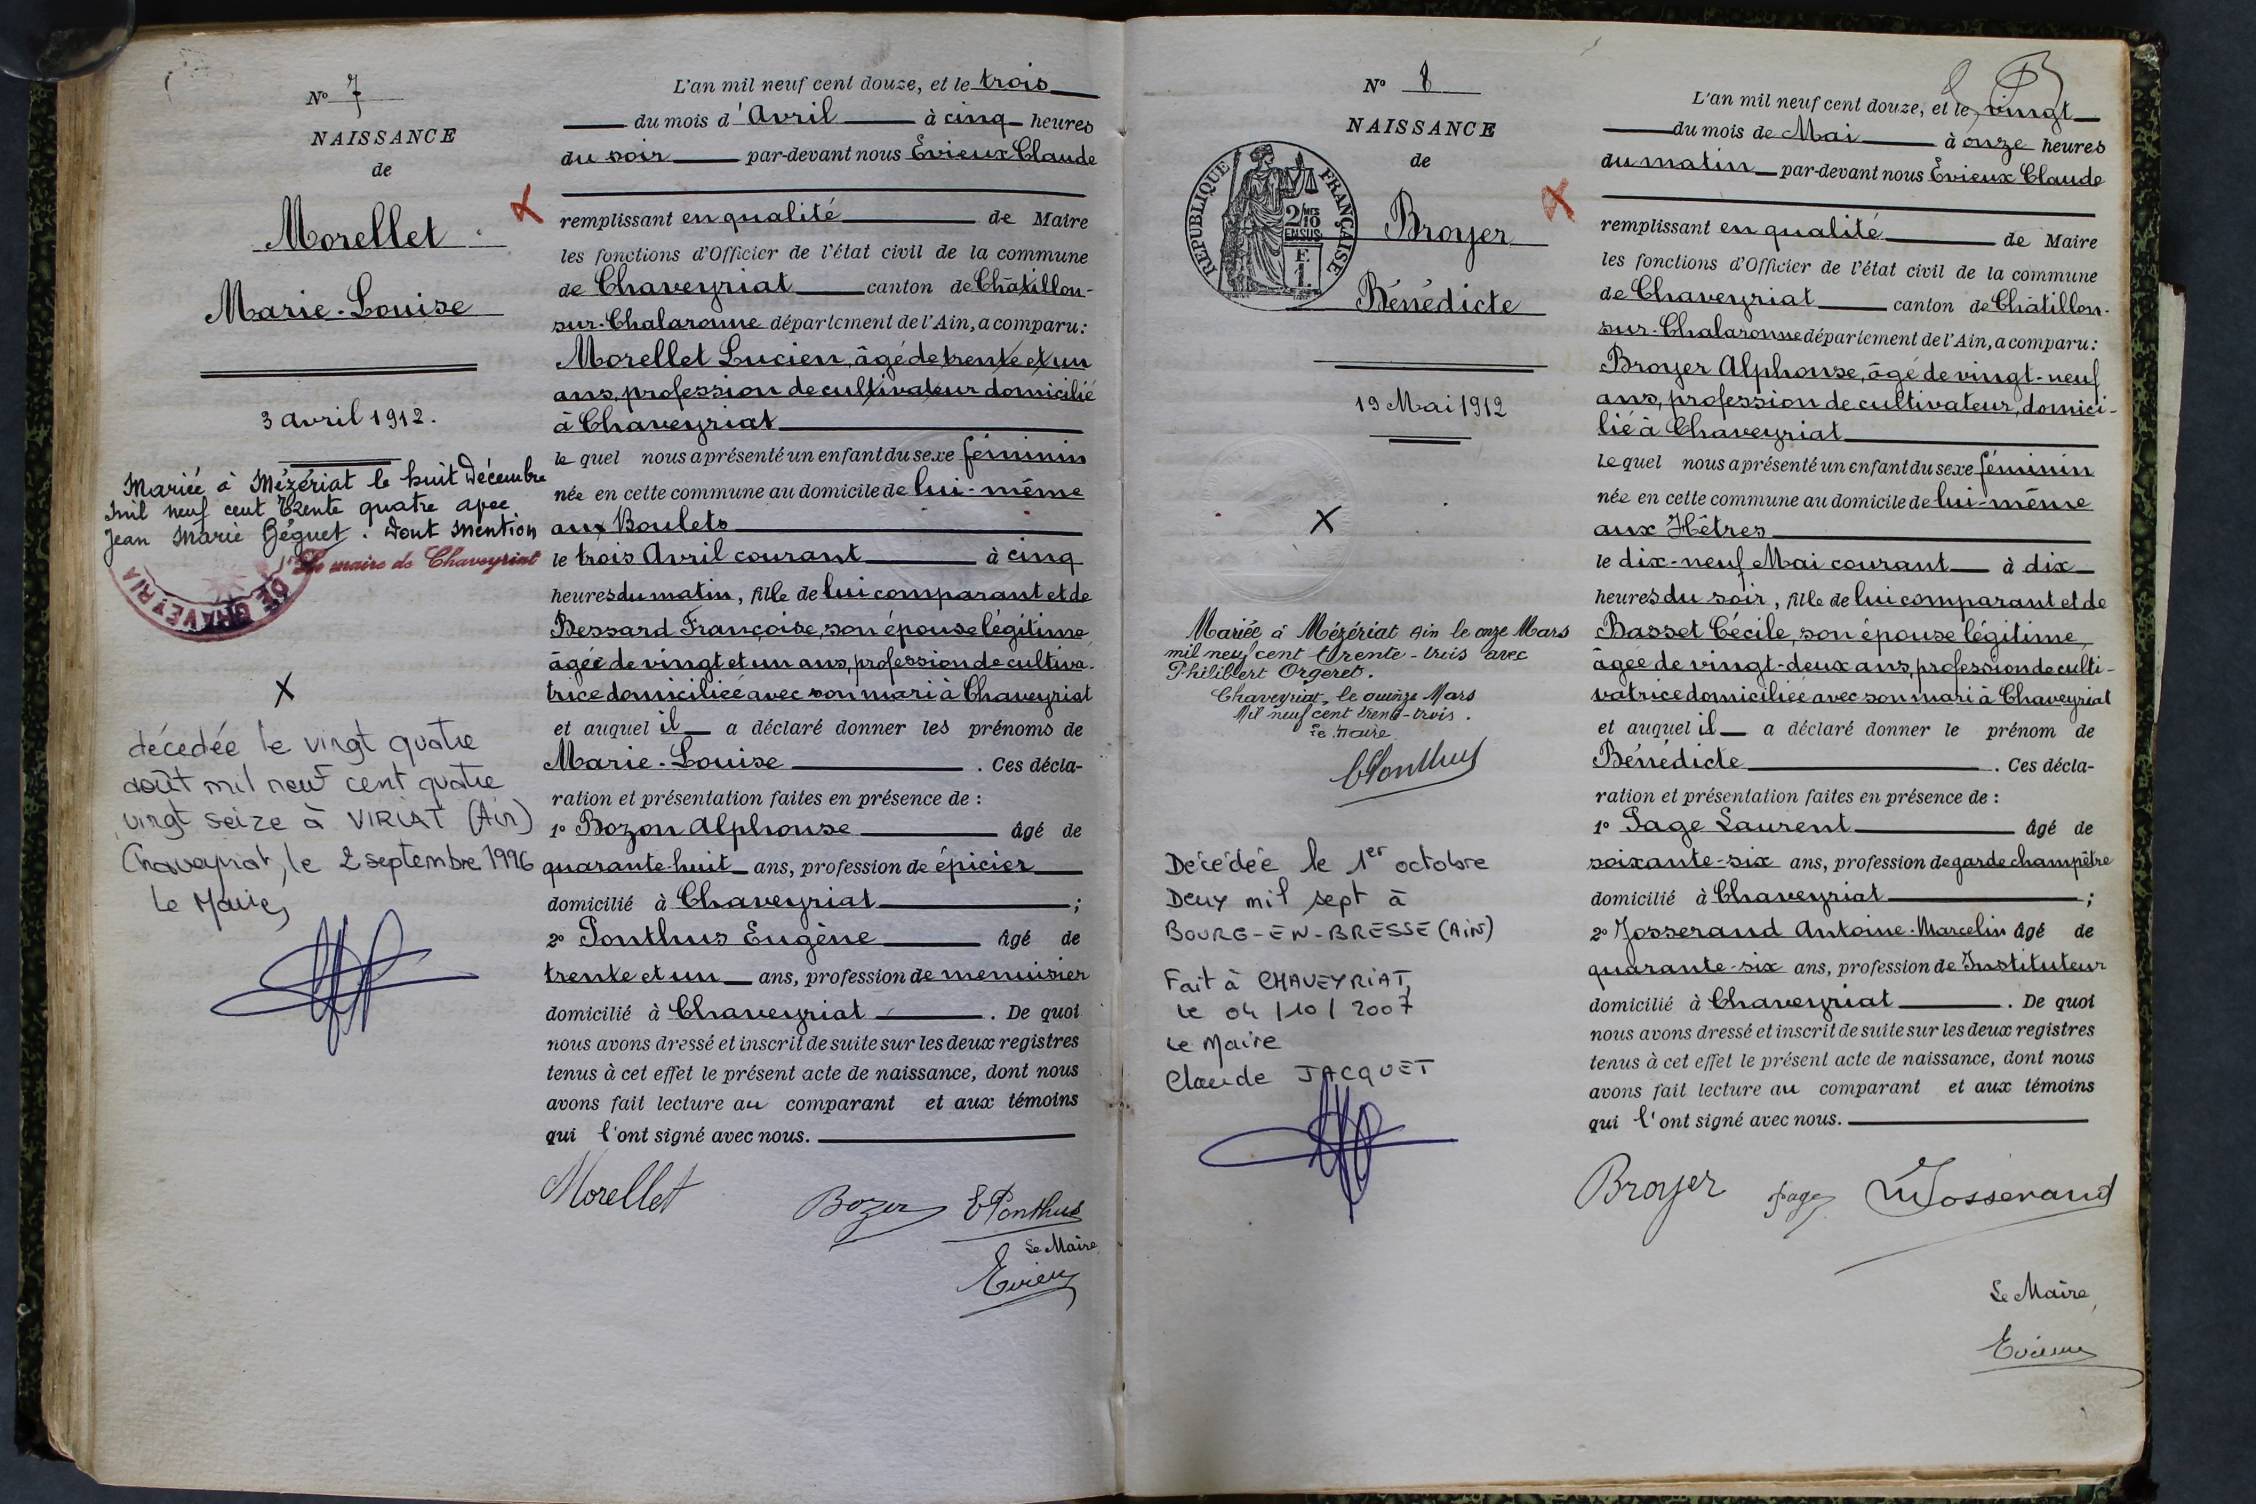 N° 7
NAISSANCE
de
Morellet
Marie-Louise
3 avril 1912.
Mariée à Mézériat le huit Décembre
mil neuf cent trente quatre avec
Jean Marie Béguet. Dont mention
Le maire de Chaveyriat
DE CHAVEYRIA
X
décédée le vingt quatre
août mil neuf cent quatre
vingt seize à VIRIAT (Ain)
Chaveyriat, le 2 septembre 1996
Le Maire,
L'an mil neuf cent douze, et le trois
du mois d'Avril à cinq heures
du soir par-devant nous Evieux Claude
remplissant en qualité de Maire
les fonctions d'Officier de l'état civil de la commune
de Chaveyriat canton de Châtillon-
sur-Chalaronne département de l'Ain, a comparu:
Morellet Lucien, âgé de trente et un
ans, profession de cultivateur domicilié
à Chaveyriat
le quel nous a présenté un enfant du sexe féminin
née en cette commune au domicile de lui-même
aux Boulets
le trois Avril courant à cinq
heures du matin, fille de lui comparant et de
Bessard Françoise, son épouse légitime,
âgée de vingt et un ans, profession de cultiva-
trice domiciliée avec son mari à Chaveyriat
et auquel il a déclaré donner les prénoms de
Marie-Louise. Ces décla-
ration et présentation faites en présence de :
1° Bozon Alphonse âgé de
quarante-huit ans, profession de épicier
domicilié à Chaveyriat ;
2° Ponthus Eugène âgé de
trente et un ans, profession de menuisier
domicilié à Chaveyriat. De quoi
nous avons dressé et inscrit de suite sur les deux registres
tenus à cet effet le présent acte de naissance, dont nous
avons fait lecture au comparant et aux témoins
qui l'ont signé avec nous.
Morellet Bozon E Ponthus
Le Maire,
Evieux
N° 8
NAISSANCE
de
RÉPUBLIQUE FRANÇAISE
2/10 MES
EN SUS
F.
1.
Broyer
Bénédicte
19 Mai 1912
X
Mariée à Mézériat Ain le onze Mars
mil neuf cent trente-trois avec
Philibert Orgeret.
Chaveyriat, le quinze Mars
Mil neuf cent trente-trois.
Le Maire
E Ponthus
Décédée le 1er octobre
Deux mil sept à
BOURG-EN-BRESSE (AiN)
Fait à CHAVEYRIAT,
Le 04/10/2007
Le Maire
Claude JACQUET
L'an mil neuf cent douze, et le vingt
du mois de Mai à onze heures
du matin par-devant nous Evieux Claude
remplissant en qualité de Maire
les fonctions d'Officier de l'état civil de la commune
de Chaveyriat canton de Châtillon-
sur-Chalaronne département de l'Ain, a comparu:
Broyer Alphonse, âgé de vingt-neuf
ans, profession de cultivateur, domici-
lié à Chaveyriat
le quel nous a présenté un enfant du sexe féminin
née en cette commune au domicile de lui-même
aux Hêtres
le dix-neuf Mai courant à dix
heures du soir, fille de lui comparant et de
Basset Cécile, son épouse légitime,
âgée de vingt-deux ans, profession de culti-
vatrice domiciliée avec son mari à Chaveyriat
et auquel il a déclaré donner le prénom de
Bénédicte. Ces décla-
ration et présentation faites en présence de :
1° Page Laurent âgé de
soixante-six ans, profession de garde champêtre
domicilié à Chaveyriat ;
2° Josserand Antoine-Marcelin âgé de
quarante-six ans, profession de Instituteur
domicilié à Chaveyriat. De quoi
nous avons dressé et inscrit de suite sur les deux registres
tenus à cet effet le présent acte de naissance, dont nous
avons fait lecture au comparant et aux témoins
qui l'ont signé avec nous.
Broyer Page Josserand
Le Maire,
Evieux